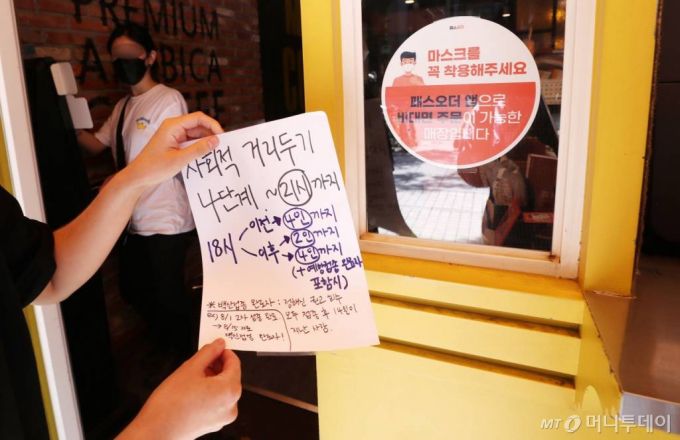 PREMIUM
사회적 거리두기
4단계 ~21시까지
18시
이전 → 4인까지
이후 → 2인까지
→ 4인까지
(+ 예방접종 완료자
포함시)
* 백신접종 완료자 : 정해진 권고 회수
모두 접종 후 14일이
지난 사람.
예) 8/1 2차 접종 완료
마스크를
꼭 착용해주세요
패스오더 앱으로
비대면 주문이 가능한
매장입니다
MT 머니투데이